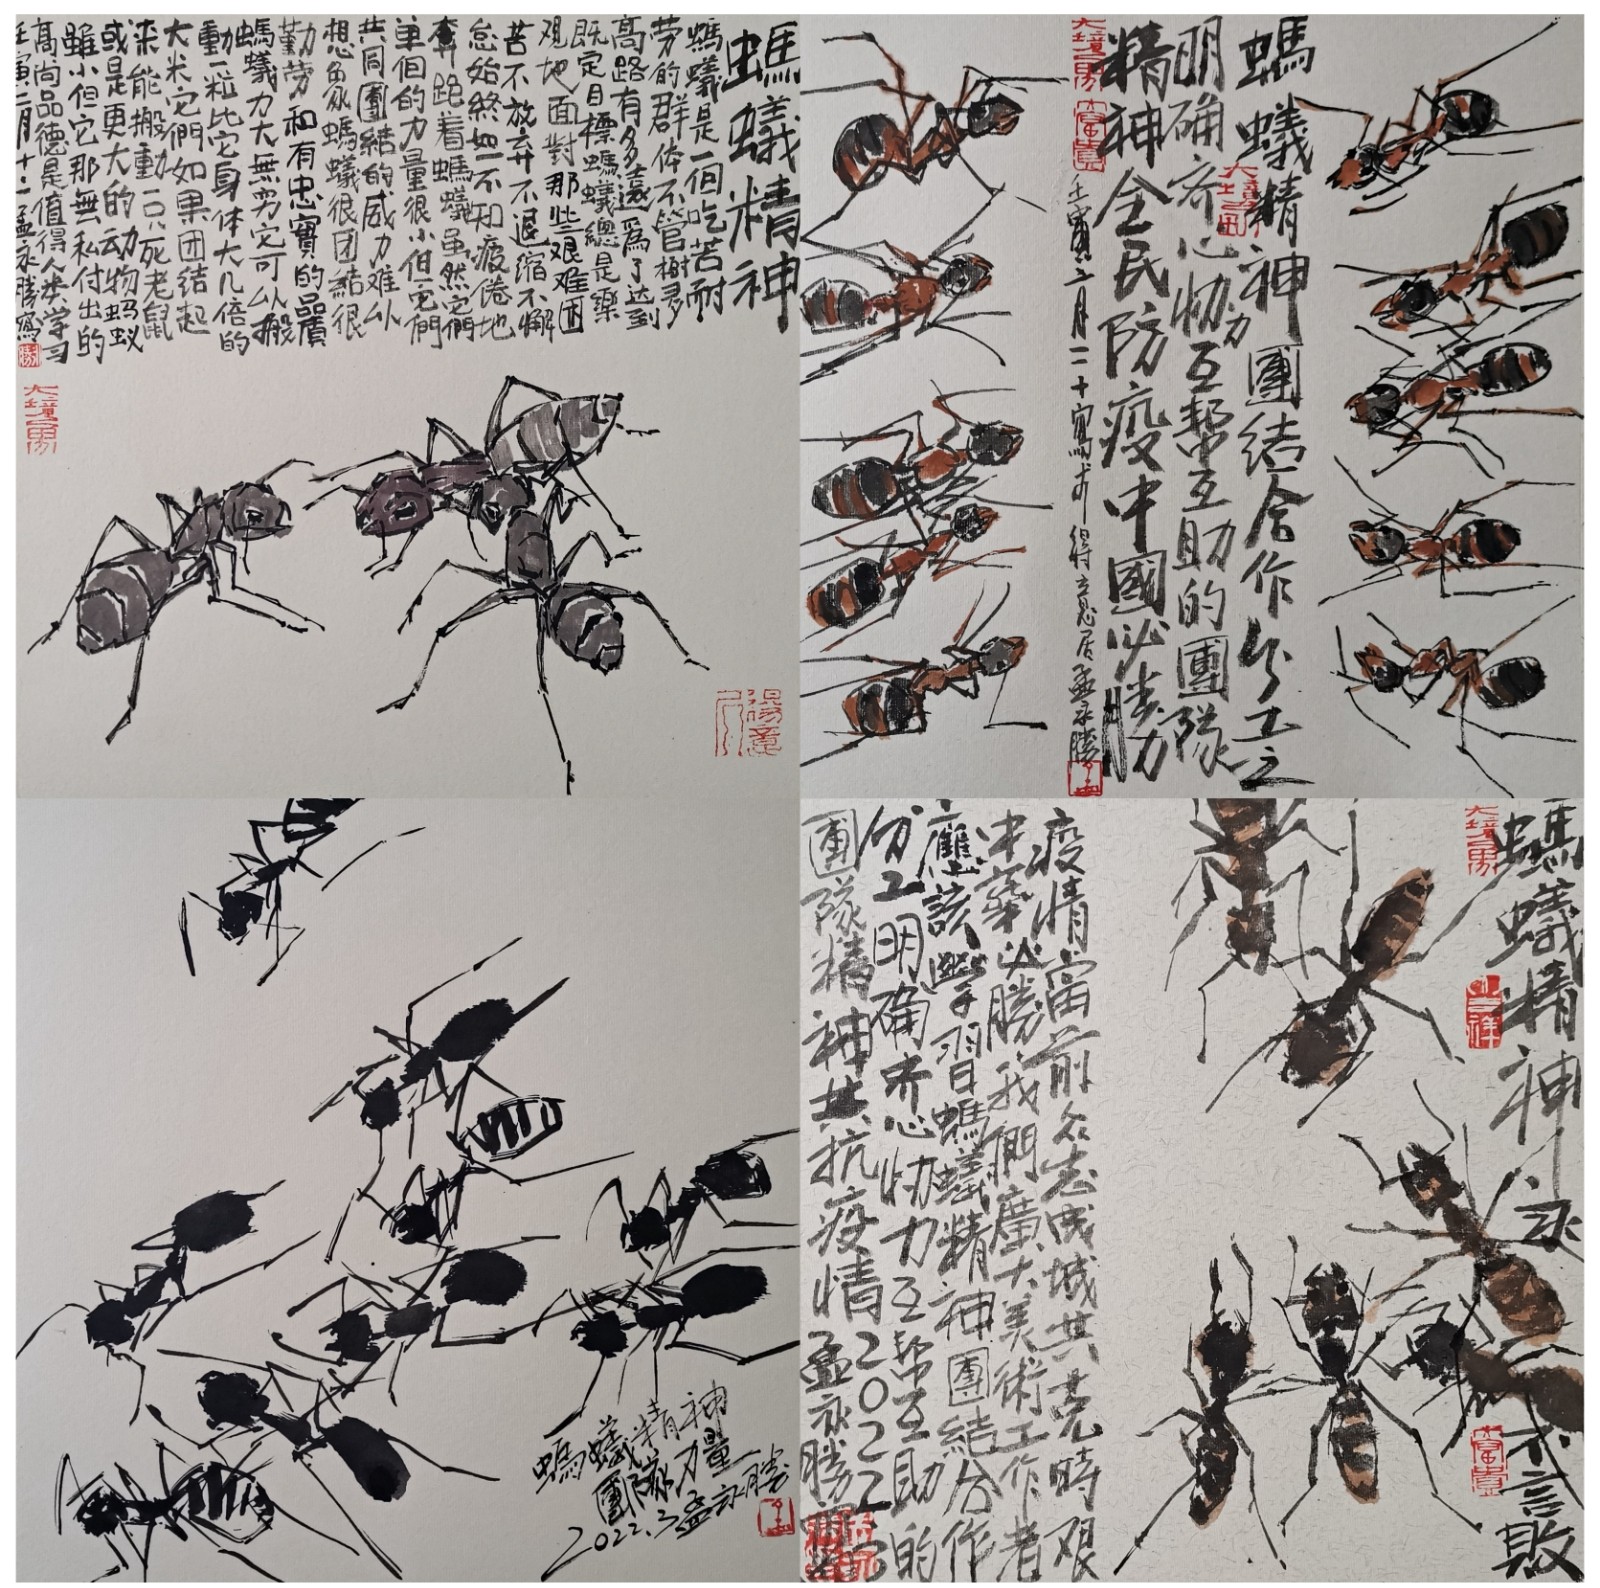 螞蟻精神
螞蟻是一個吃苦耐
劳的群体不管樹多
高路有多遠爲了达到
既定目標螞蟻總是樂
观地面對那些艰难困
苦不放弃不退缩不懈
怠始終如一不知疲倦地
奔跑着螞蟻虽然它們
单個的力量很小但它們
共同團結的威力难以
想象螞蟻很团結很
勤劳和有忠實的品質
螞蟻力大無穷它可以搬
動一粒比它身体大几倍的
大米它們如果团结起
来能搬動一只死老鼠
或是更大的动物蚂蚁
雖小但它那無私付出的
高尚品德是值得人类学习
壬寅二月十二孟永勝寫
螞蟻精神團結合作分工
明确齐心协力互帮互助的團隊
精神全民防疫中國必勝
富貴
壬寅二月二十寫于得意居孟永勝
螞蟻精神
團隊力量
2022.3孟永勝
螞蟻精神永不言敗
吉祥
富貴
疫情當前众志成城共克時艰
中華必勝我們廣大美術工作者
應該學習螞蟻精神團結合作
分工明确齐心协力互帮互助的
團隊精神共抗疫情2022.3孟永勝